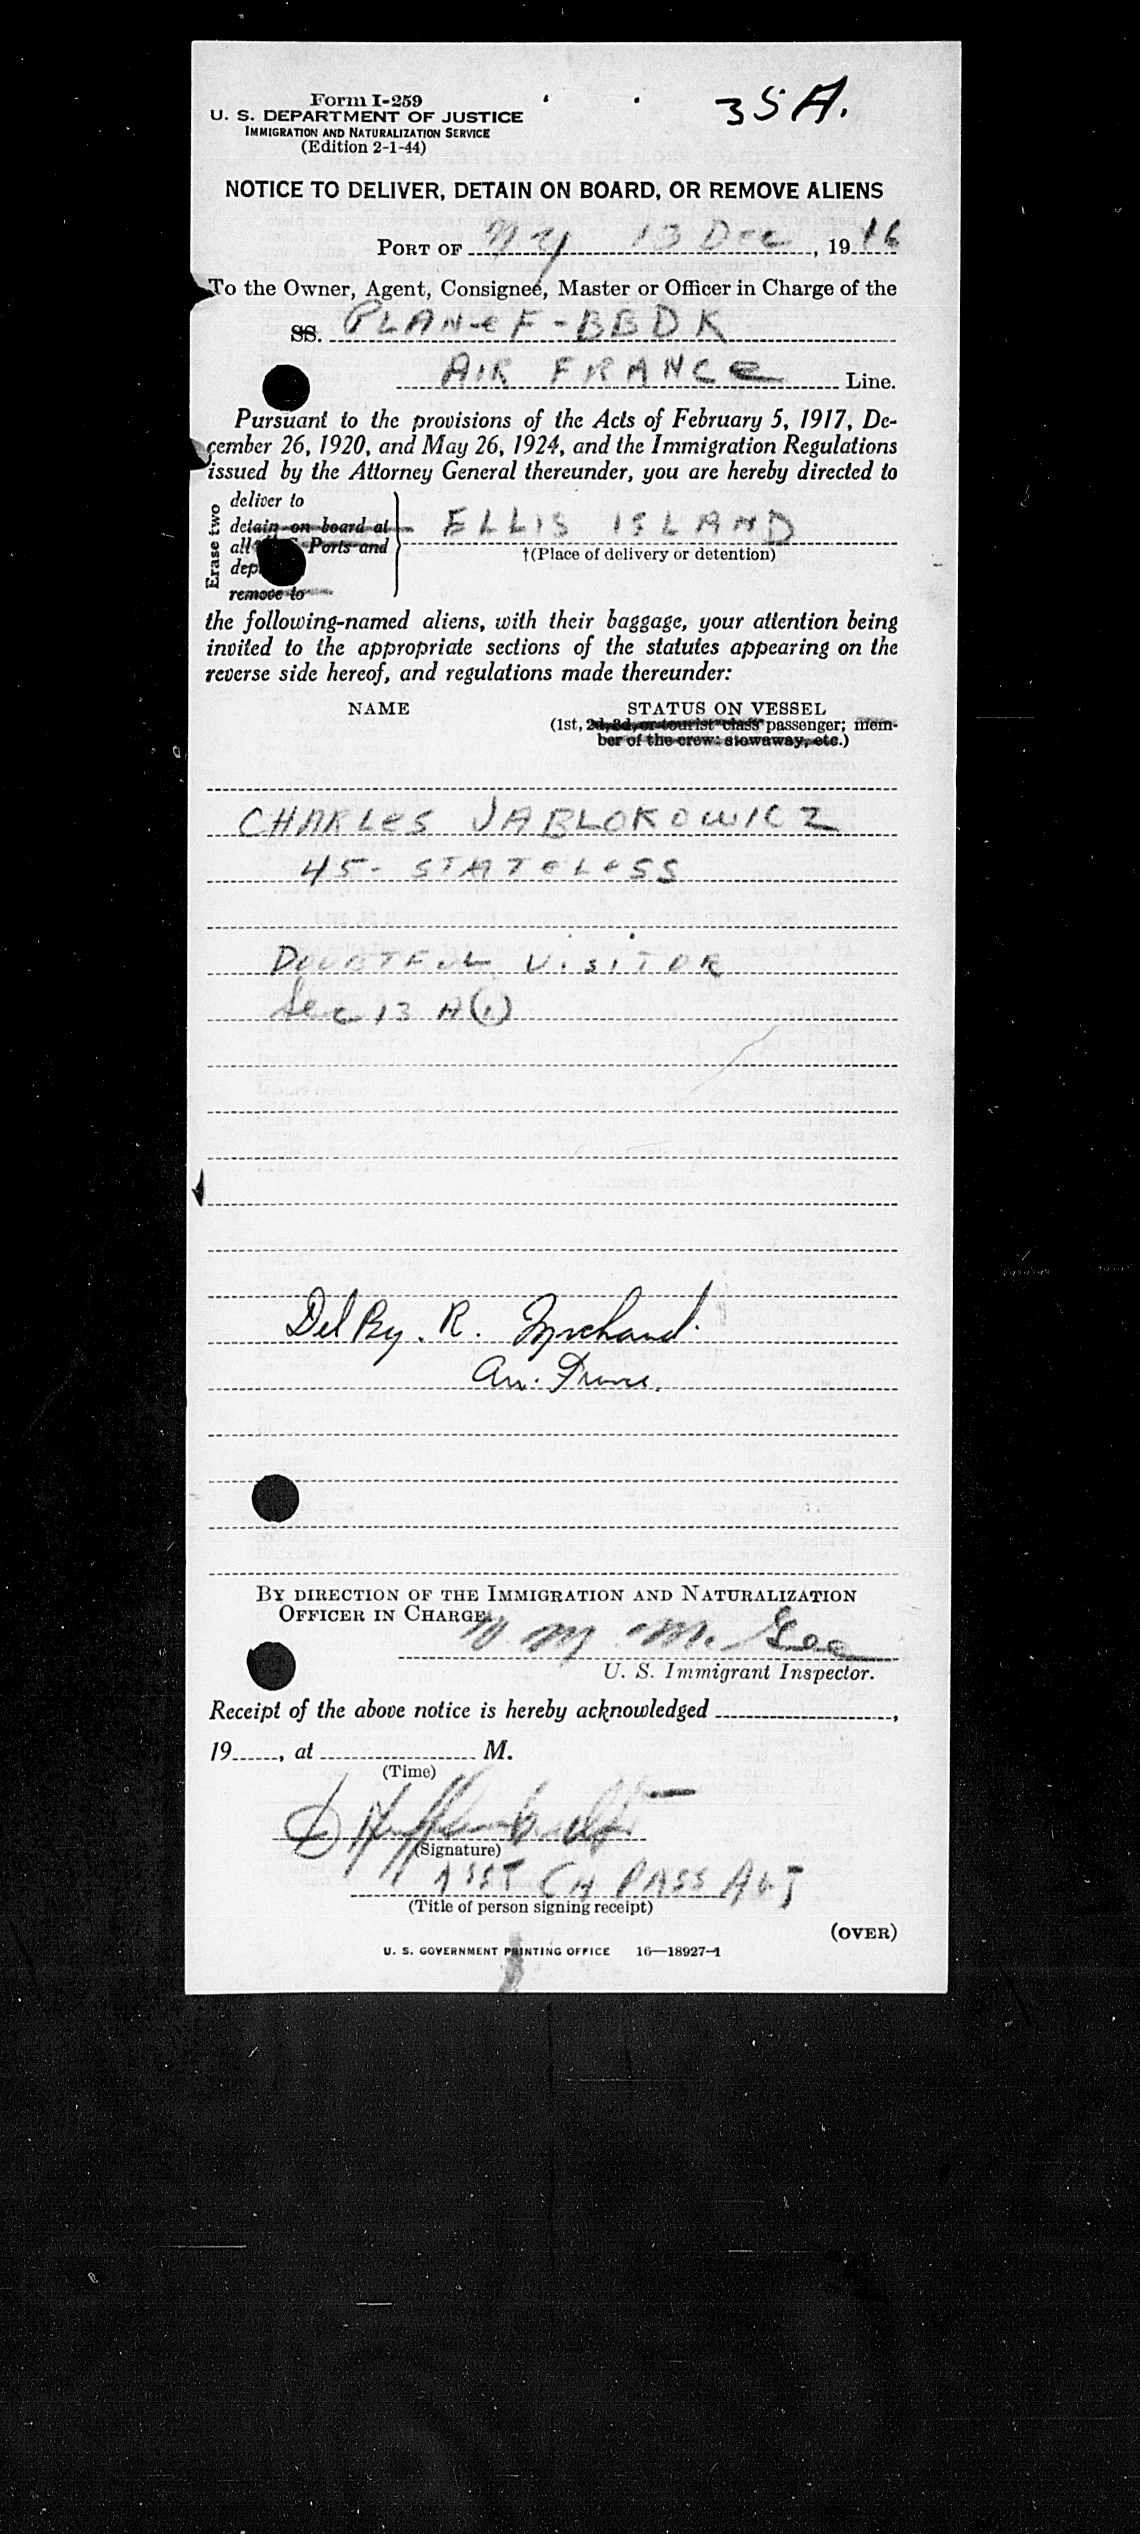 Form I-259
35A.
U. S. DEPARTMENT OF JUSTICE
IMMIGRATION AND NATURALIZATION SERVICE
(Edition 2-1-44)
NOTICE TO DELIVER, DETAIN ON BOARD, OR REMOVE ALIENS
PORT OF NY 13 Dec, 1946
To the Owner, Agent, Consignee, Master or Officer in Charge of the
SS. PLANE F-BBDK
AIR FRANCE Line.
Pursuant to the provisions of the Acts of February 5, 1917, De-
cember 26, 1920, and May 26, 1924, and the Immigration Regulations
issued by the Attorney General thereunder, you are hereby directed to
Erase two
deliver to
detain on board at
all Ports and
remove to
ELLIS ISLAND
†(Place of delivery or detention)
the following-named aliens, with their baggage, your attention being
invited to the appropriate sections of the statutes appearing on the
reverse side hereof, and regulations made thereunder:
NAME STATUS ON VESSEL
(1st, 2d, 3d, or tourist class passenger; mem-
ber of the crew; stowaway, etc.)
CHARLES JABLOKOWICZ
45- STATELESS
DOUBTFUL VISITOR
Sec 13 A(1)
Del By. R.
Air France.
BY DIRECTION OF THE IMMIGRATION AND NATURALIZATION
OFFICER IN CHARGE
U. S. Immigrant Inspector.
Receipt of the above notice is hereby acknowledged ,
19 , at M.
(Time)
(Signature)
ASST CH PASS AGT
(Title of person signing receipt)
(OVER)
U. S. GOVERNMENT PRINTING OFFICE 16—18927-1